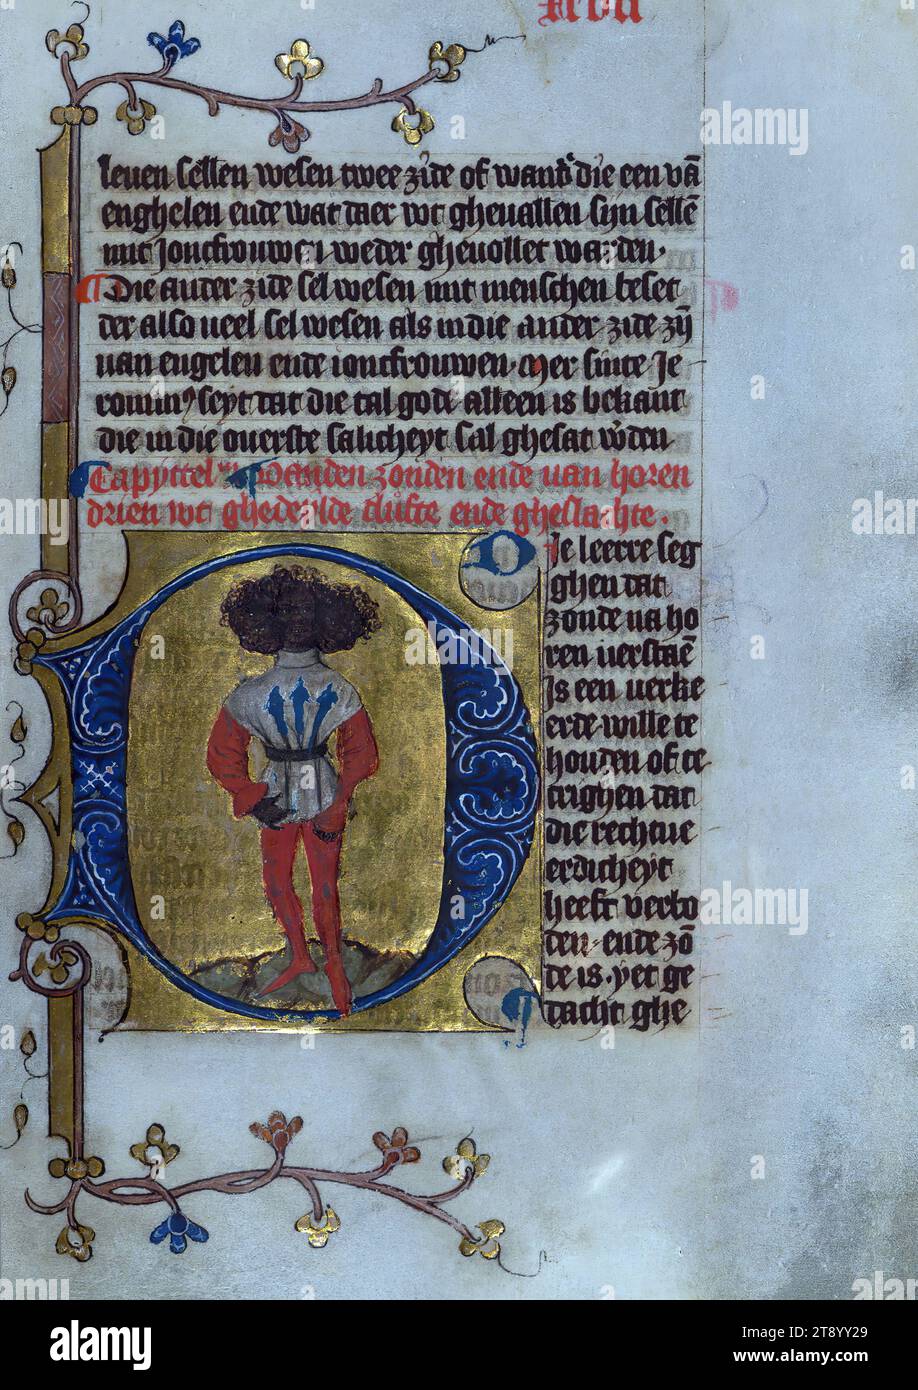 xvii
leuen sellen wesen twee zide of wand' die een vā
enghelen ende wat daer wt gheuallen sijn sellē
mit joncfrouwen weder gheuollet warden·
Die ander zide sel wesen mit menschen beset
der also veel sel wesen als in die ander zide zij
van engelen ende joncfrouwen· mer sinte Je
ronim⁹ seyt dat die tal gode alleen is bekant
die in die ouerste salicheyt sal ghesat w'den
Capyttel vanden zonden ende van horen
drien wt ghedeylde cluste ende gheslachte·
Die leerre seg
ghen dat
zonde na ho
ren verstaē
Is een verke
erde wille te
houden of te
crighen dat
die rechtue
erdicheyt
heeft verbo
den· ende zō
de is· yet ge
dacht ghe
alamy
Image ID: 2T8YY29
www.alamy.com